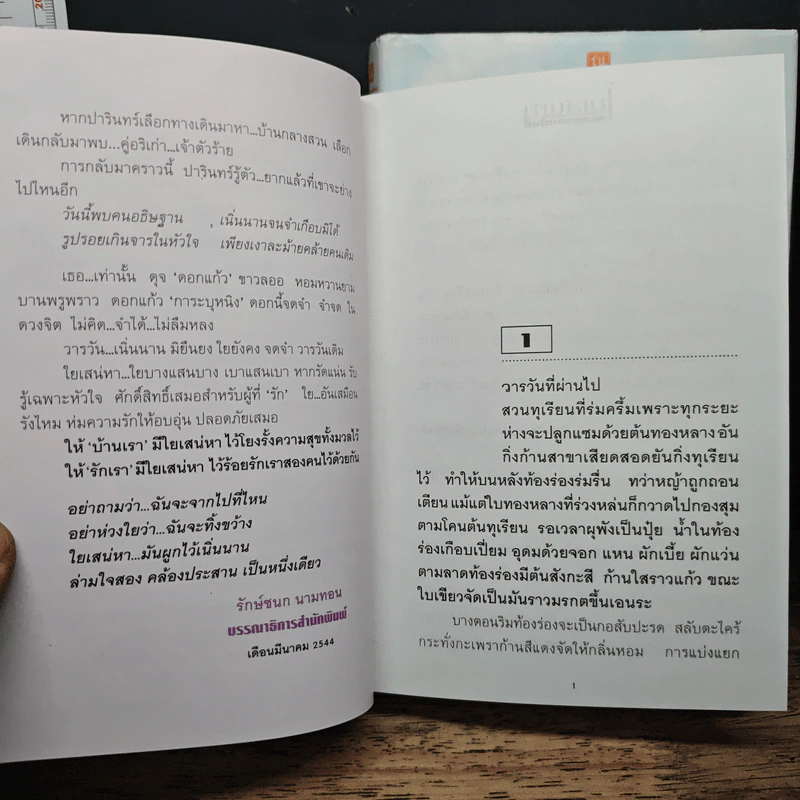 หากปารินทร์เลือกทางเดินมาหา...บ้านกลางสวน เลือก
เดินกลับมาพบ...คู่อริเก่า...เจ้าตัวร้าย
การกลับมาคราวนี้ ปารินทร์รู้ตัว...ยากแล้วที่เขาจะย่าง
ไปไหนอีก
วันนี้พบคนอธิษฐาน , เนิ่นนานจนจำเกือบมิได้
รูปรอยเกินจารในหัวใจ เพียงเงาละม้ายคล้ายคนเดิม
เธอ...เท่านั้น ดุจ ‘ดอกแก้ว’ ขาวลออ หอมหวานยาม
บานพรูพราว ดอกแก้ว ‘การะบุหนิง’ ดอกนี้จดจำ จำจด ใน
ดวงจิต ไม่คิด...จำได้...ไม่ลืมหลง
วารวัน...เนิ่นนาน มิยืนยง ใยยังคง จดจำ วารวันเดิม
ใยเสน่หา...ใยบางแสนบาง เบาแสนเบา หากรัดแน่น รับ
รู้เฉพาะหัวใจ ศักดิ์สิทธิ์เสมอสำหรับผู้ที่ ‘รัก’ ใย...อันเสมือน
รังไหม ห่มความรักให้อบอุ่น ปลอดภัยเสมอ
ให้ ‘บ้านเรา’ มีใยเสน่หา ไว้โยงรั้งความสุขทั้งมวลไว้
ให้ ‘รักเรา’ มีใยเสน่หา ไว้ร้อยรักเราสองคนไว้ด้วยกัน
อย่าถามว่า...ฉันจะจากไปที่ไหน
อย่าห่วงใยว่า...ฉันจะทิ้งขว้าง
ใยเสน่หา...มันผูกไว้เนิ่นนาน
ล่ามใจสอง คล้องประสาน เป็นหนึ่งเดียว
รักษ์ชนก นามทอน
บรรณาธิการสำนักพิมพ์
เดือนมีนาคม 2544
1
วารวันที่ผ่านไป
สวนทุเรียนที่ร่มครึ้มเพราะทุกระยะ
ห่างจะปลูกแซมด้วยต้นทองหลาง อัน
กิ่งก้านสาขาเสียดสอดยันกิ่งทุเรียน
ไว้ ทำให้บนหลังท้องร่องร่มรื่น ทว่าหญ้าถูกถอน
เตียน แม้แต่ใบทองหลางที่ร่วงหล่นก็กวาดไปกองสุม
ตามโคนต้นทุเรียน รอเวลาผุพังเป็นปุ๋ย น้ำในท้อง
ร่องเกือบเปี่ยม อุดมด้วยจอก แหน ผักเบี้ย ผักแว่น
ตามลาดท้องร่องมีต้นสังกะสี ก้านใสราวแก้ว ขณะ
ใบเขียวจัดเป็นมันราวมรกตขึ้นเอนระ
บางตอนริมท้องร่องจะเป็นกอสับปะรด สลับตะไคร้
กระทั่งกะเพราก้านสีแดงจัดให้กลิ่นหอม การแบ่งแยก
1